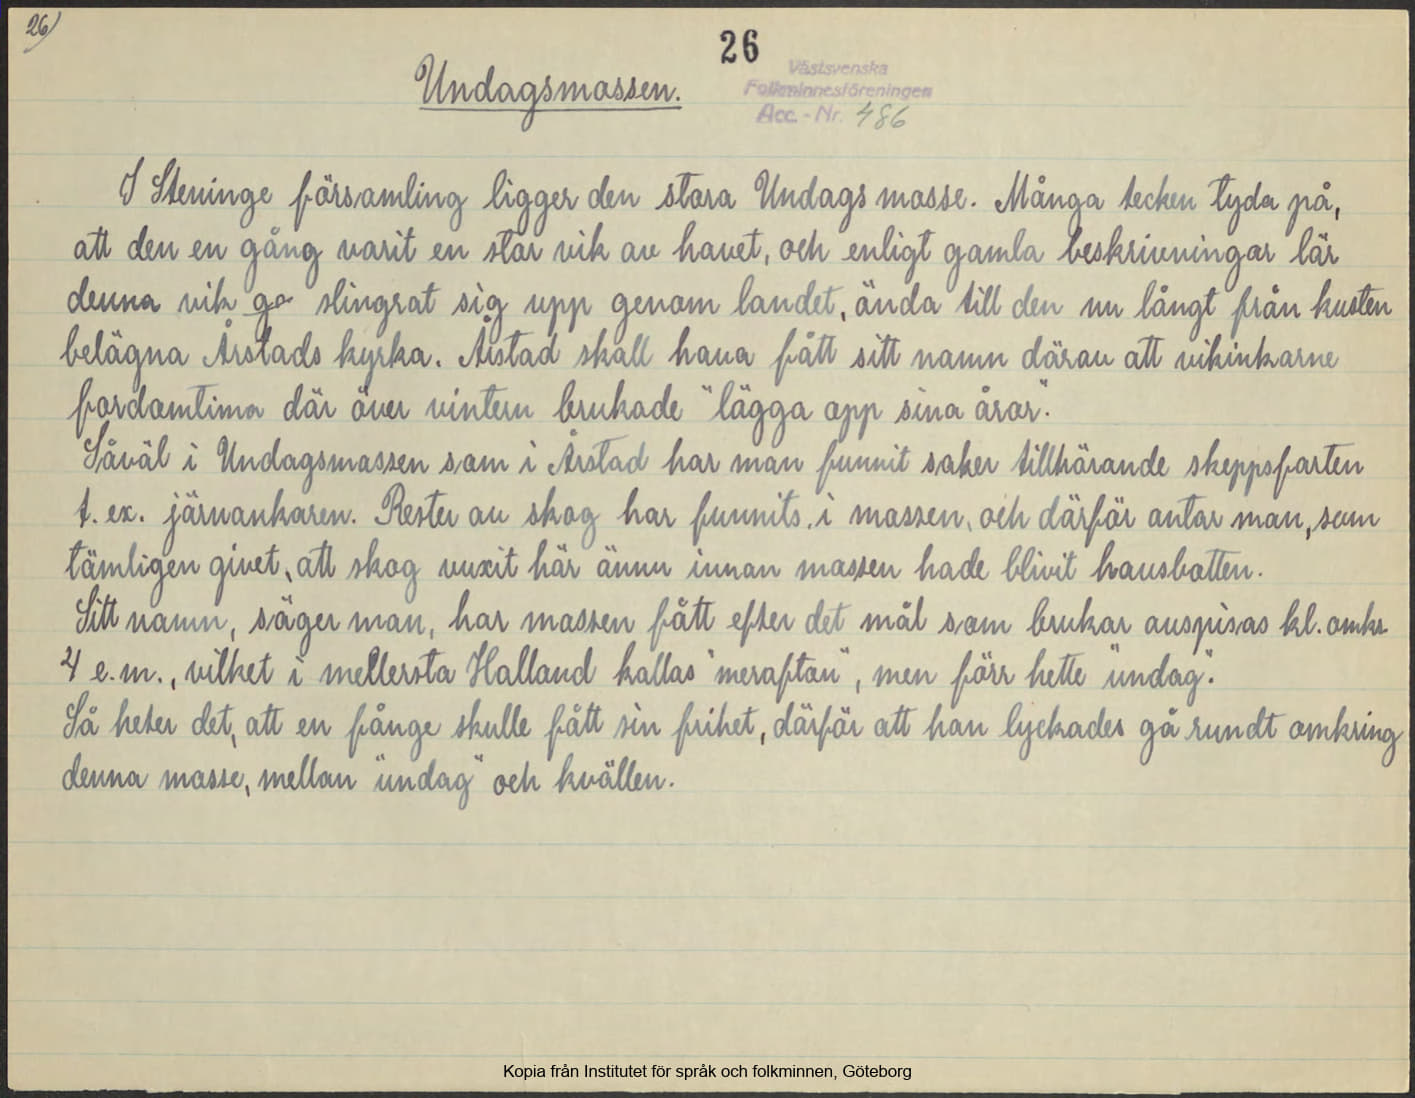 26)
26
Undagsmossen.
Västsvenska
Folkminnesföreningen
Acc. - Nr. 486
I Steninge församling ligger den stora Undags mosse. Många tecken tyda på,
att den en gång varit en stor vik av havet, och enligt gamla beskrivningar lär
denna vik go slingrat sig upp genom landet, ända till den nu långt från kusten
belägna Årstads kyrka. Årstad skall hava fått sitt namn därav att vikinkarne
fordomtima där över vintern brukade "lägga opp sina åror".
Såväl i Undagsmossen som i Årstad har man funnit saker tillhörande skeppsfarten
t. ex. järnankaren. Rester av skog har funnits i mossen, och därför antar man, som
tämligen givet, att skog vuxit här ännu innan mossen hade blivit havsbotten.
Sitt namn, säger man, har mossen fått efter det mål som brukar avspisas kl. omkr
4 e.m., vilket i mellersta Halland kallas "meraftan", men förr hette "undag".
Så heter det, att en fånge skulle fått sin frihet, därför att han lyckades gå rundt omkring
denna mosse, mellan "undag" och kvällen.
Kopia från Institutet för språk och folkminnen, Göteborg